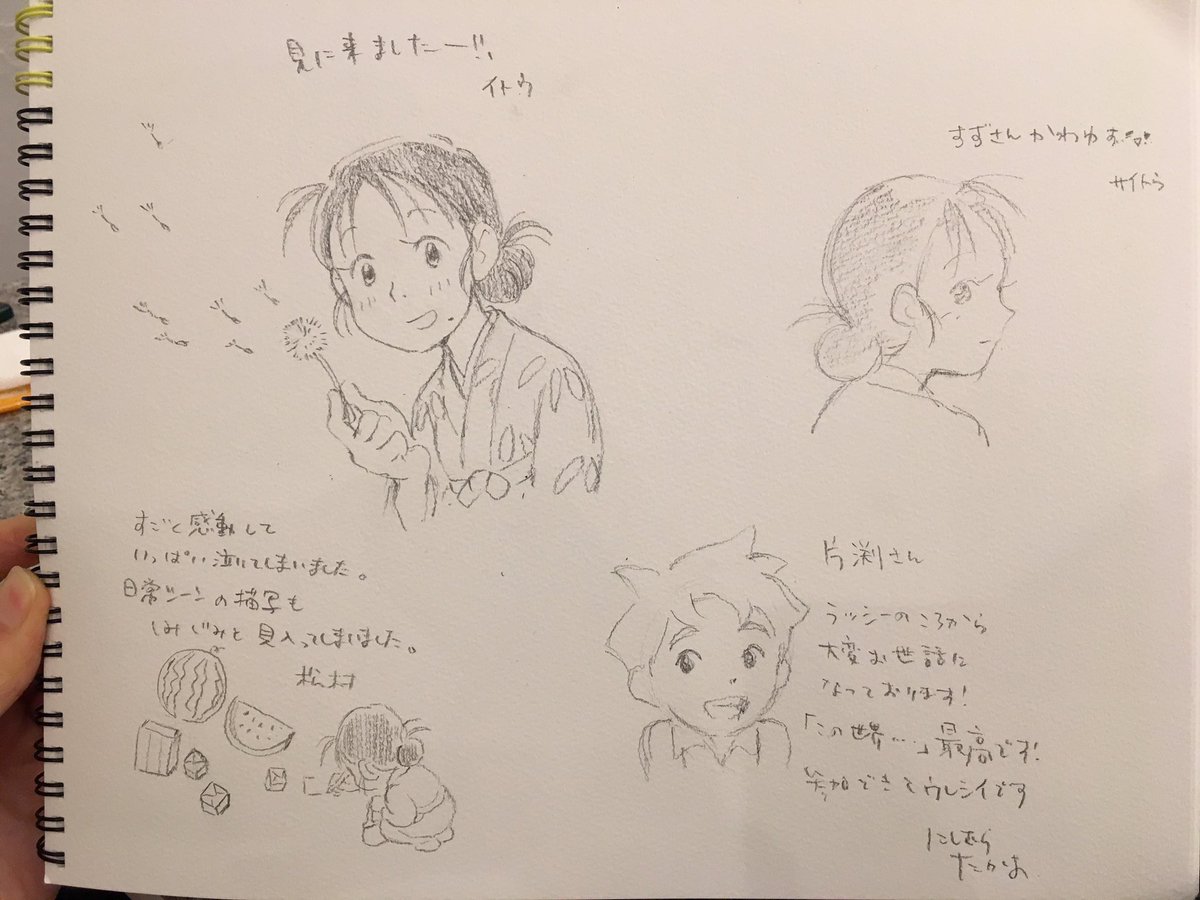 見に来ましたー!!
イトウ
すずさんかわゆす
サイトう
すごく感動して
いっぱい泣いてしまいました。
日常シーンの描写も
しみじみと見入ってしましました。
松村
片渕さん
ラッシーのころから
大変お世話に
なっております!
「この世界…」最高です!
参加できてウレシイです
にしむら
たかお